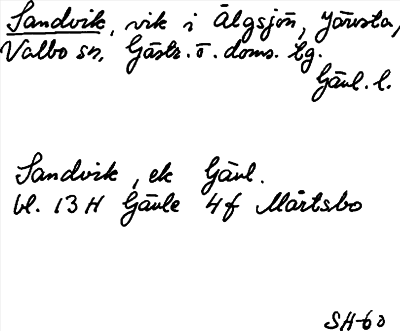 Sandvik, vik i Älgsjön, Järvsta,
Valbo sn, Gästr. ö. doms. tg.
Gävl. l.
Sandvik, ek Gävl.
bl. 13 H Gävle 4f Mårtsbo
SH-60